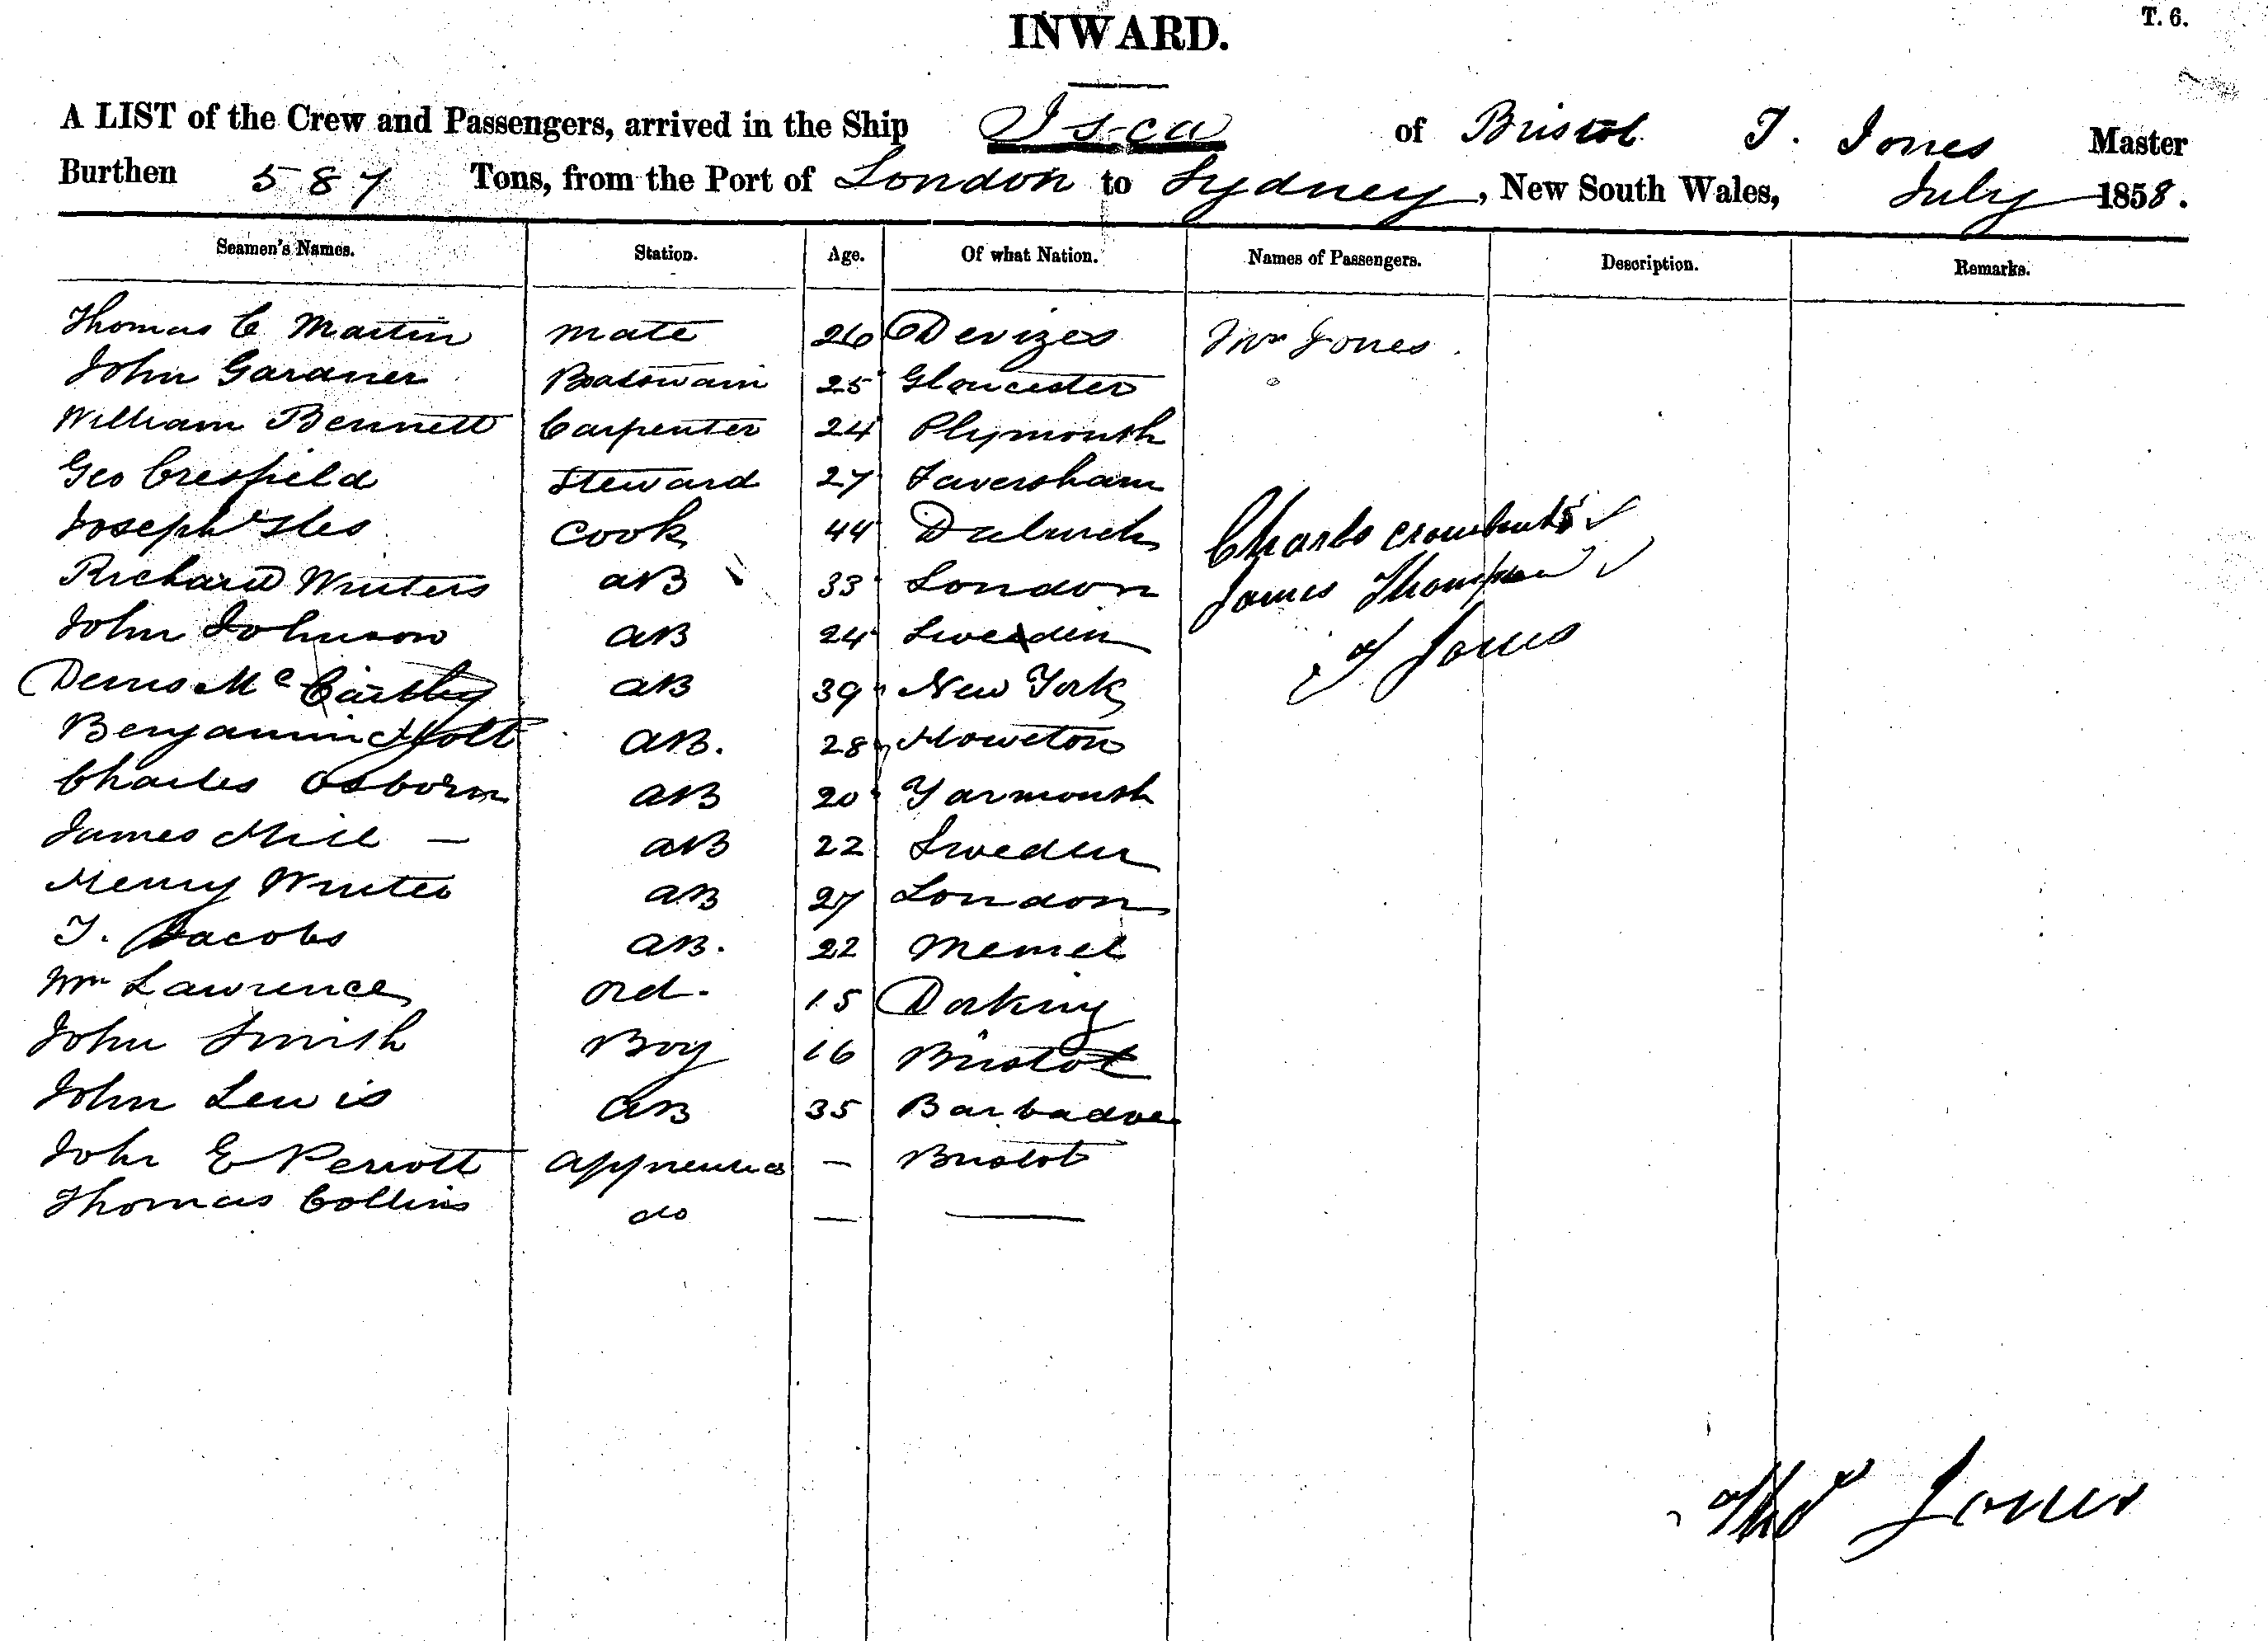 T. 6.
INWARD.
A LIST of the Crew and Passengers, arrived in the Ship Isca of Bristol T. Jones Master
Burthen 587 Tons, from the Port of London to Sydney, New South Wales, July 1858.
Seamen's Names. Station. Age. Of what Nation. Names of Passengers. Description. Remarks.
Thomas C Martin Mate 26 Devizes Mrs Jones.
John Gardner Boatswain 25 Gloucester
William Bennett Carpenter 24 Plymouth
Geo Cresfield Steward 27 Faversham
Joseph Iles Cook 44 Dulwich
Charles
Richard Winters AB 33 London
James Thompson
John Johnson AB 24 Sweden
T Jones
Denis McCarthy AB 39 New York
Benjamin Holt AB. 28
Charles Osborn AB 20 Yarmouth
James Hill — AB 22 Sweden
Henry Winter AB 27 London
T. Jacobs AB. 22 Memel
Wm Lawrence Ord. 15 Dorking
John Smith Boy 16 Bristol
John Lewis AB 35 Barbadoes
John E Perrott Apprentice — Bristol
Thomas Collins do — —
Thos Jones